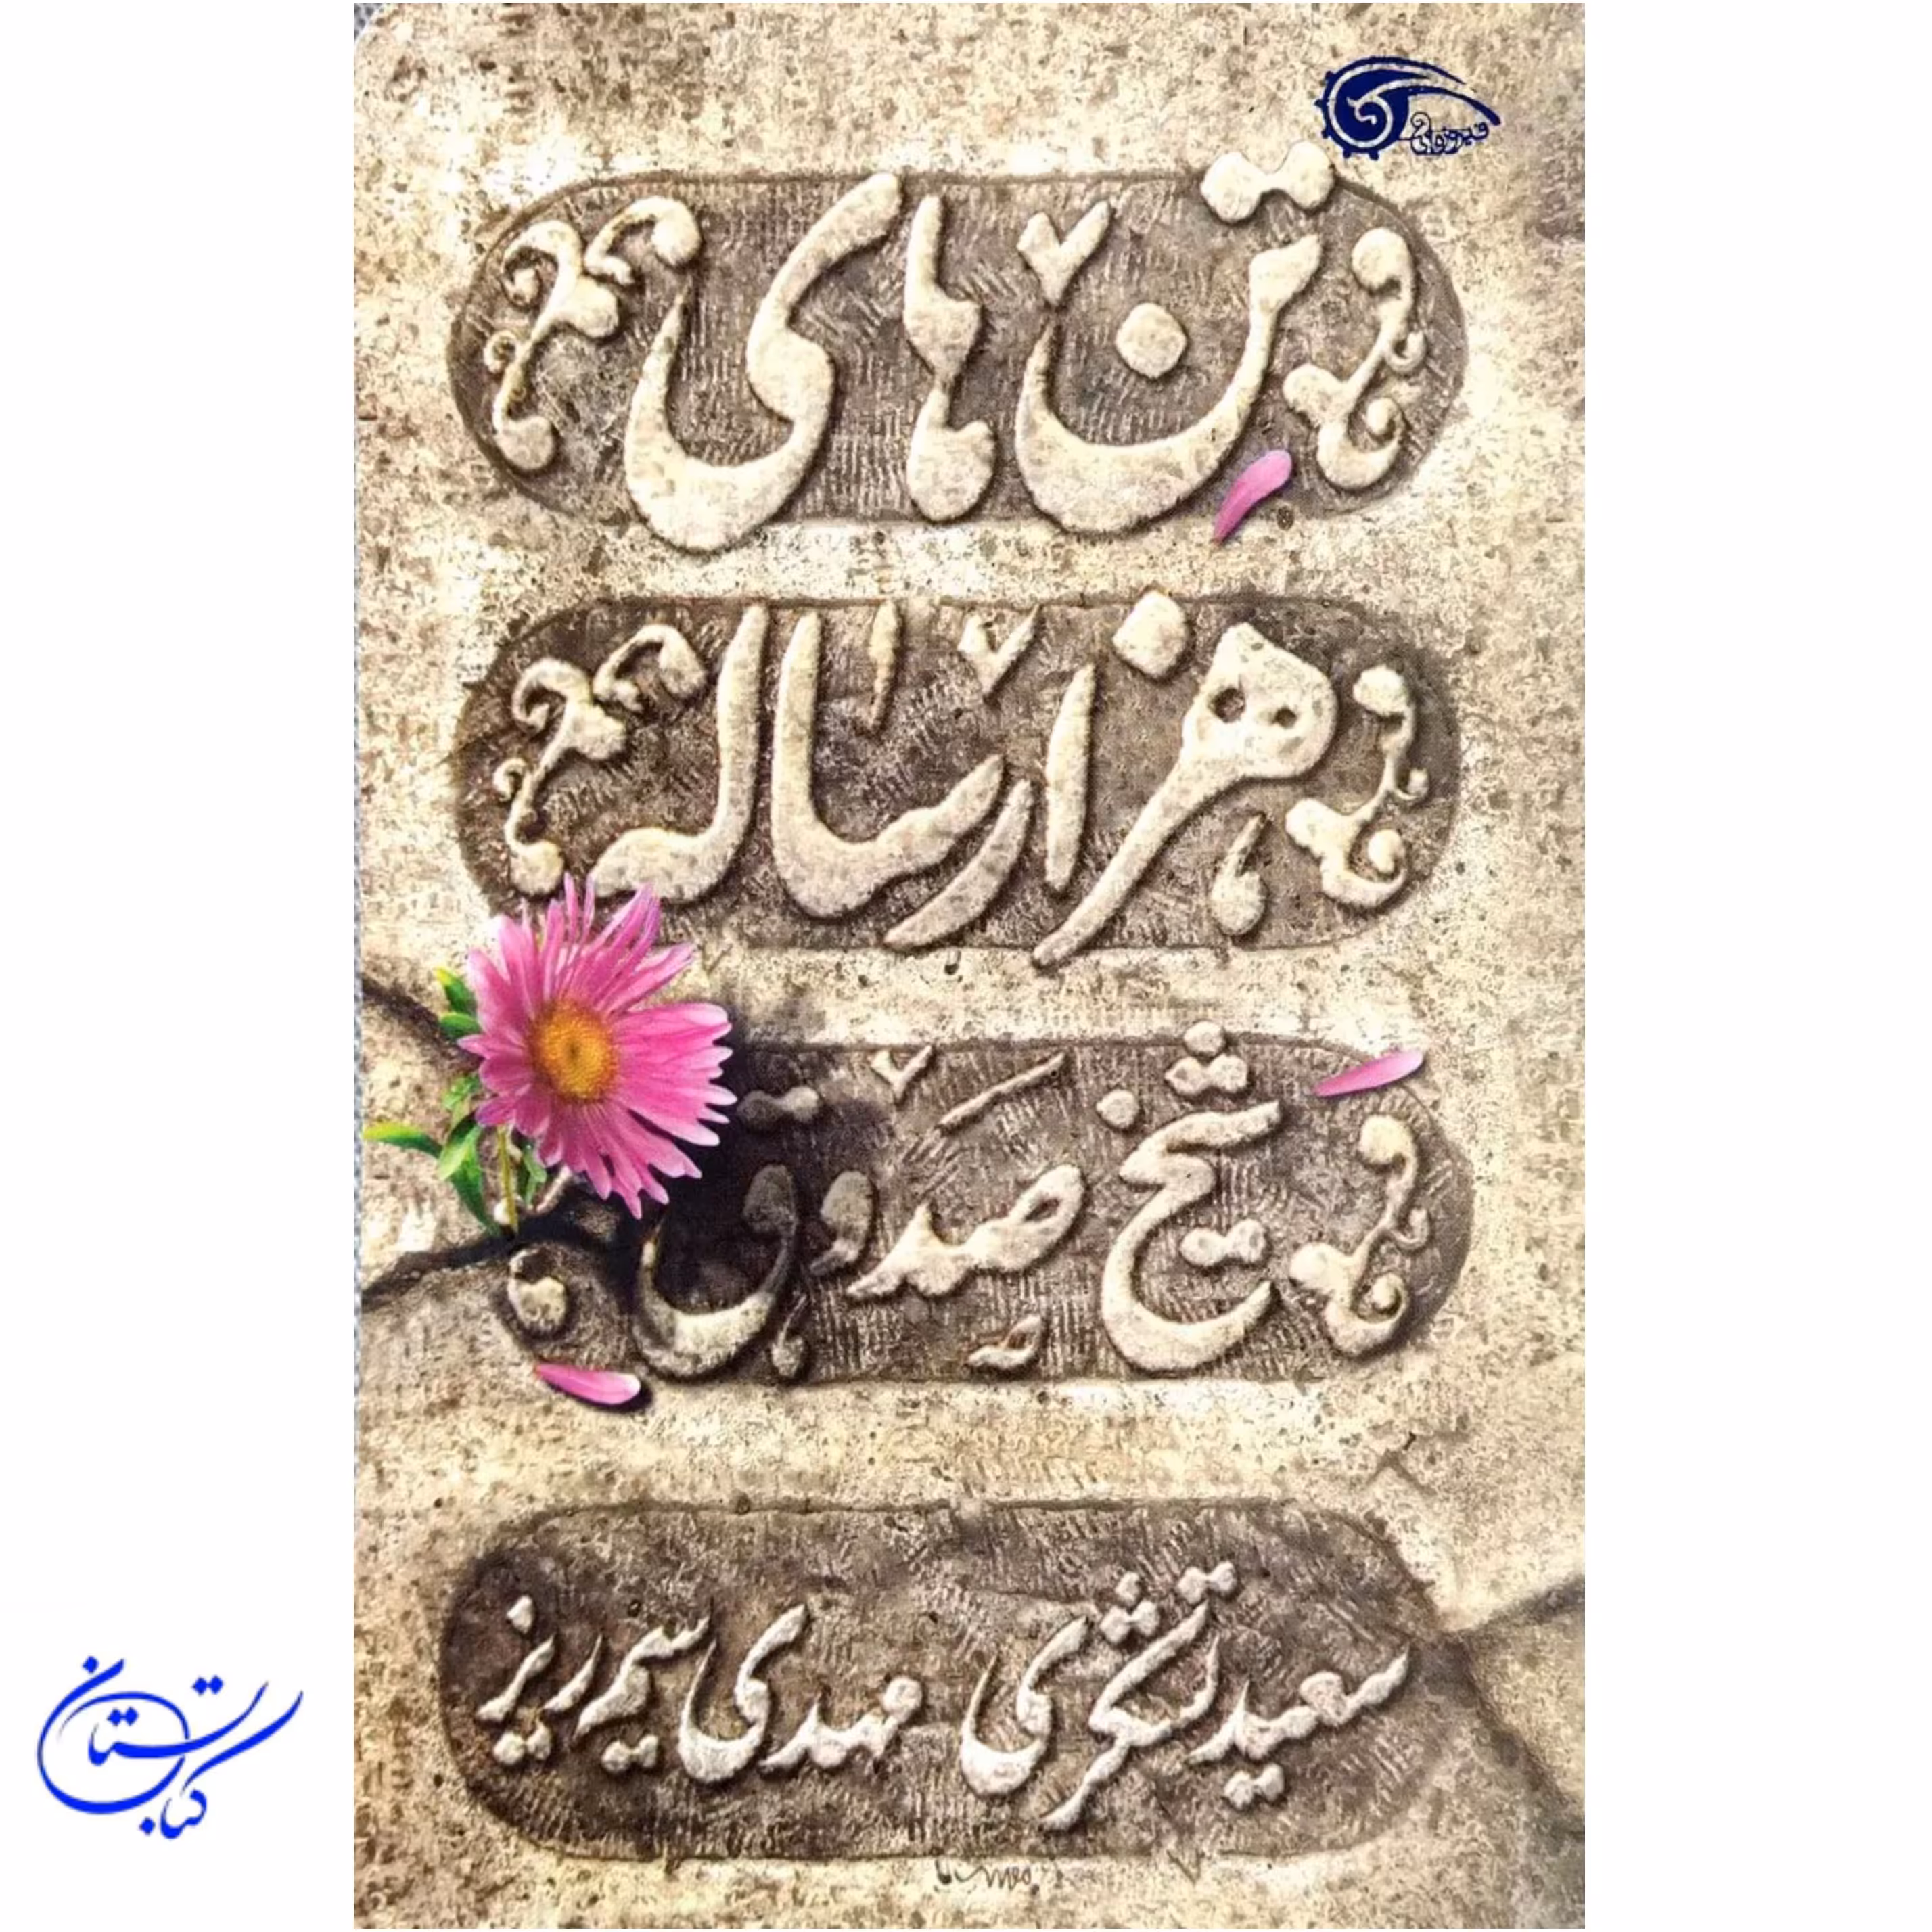 تن های
هزار ساله
شیخ صدوق
سعید تشکری مهدی سیم ریز
کتابستان